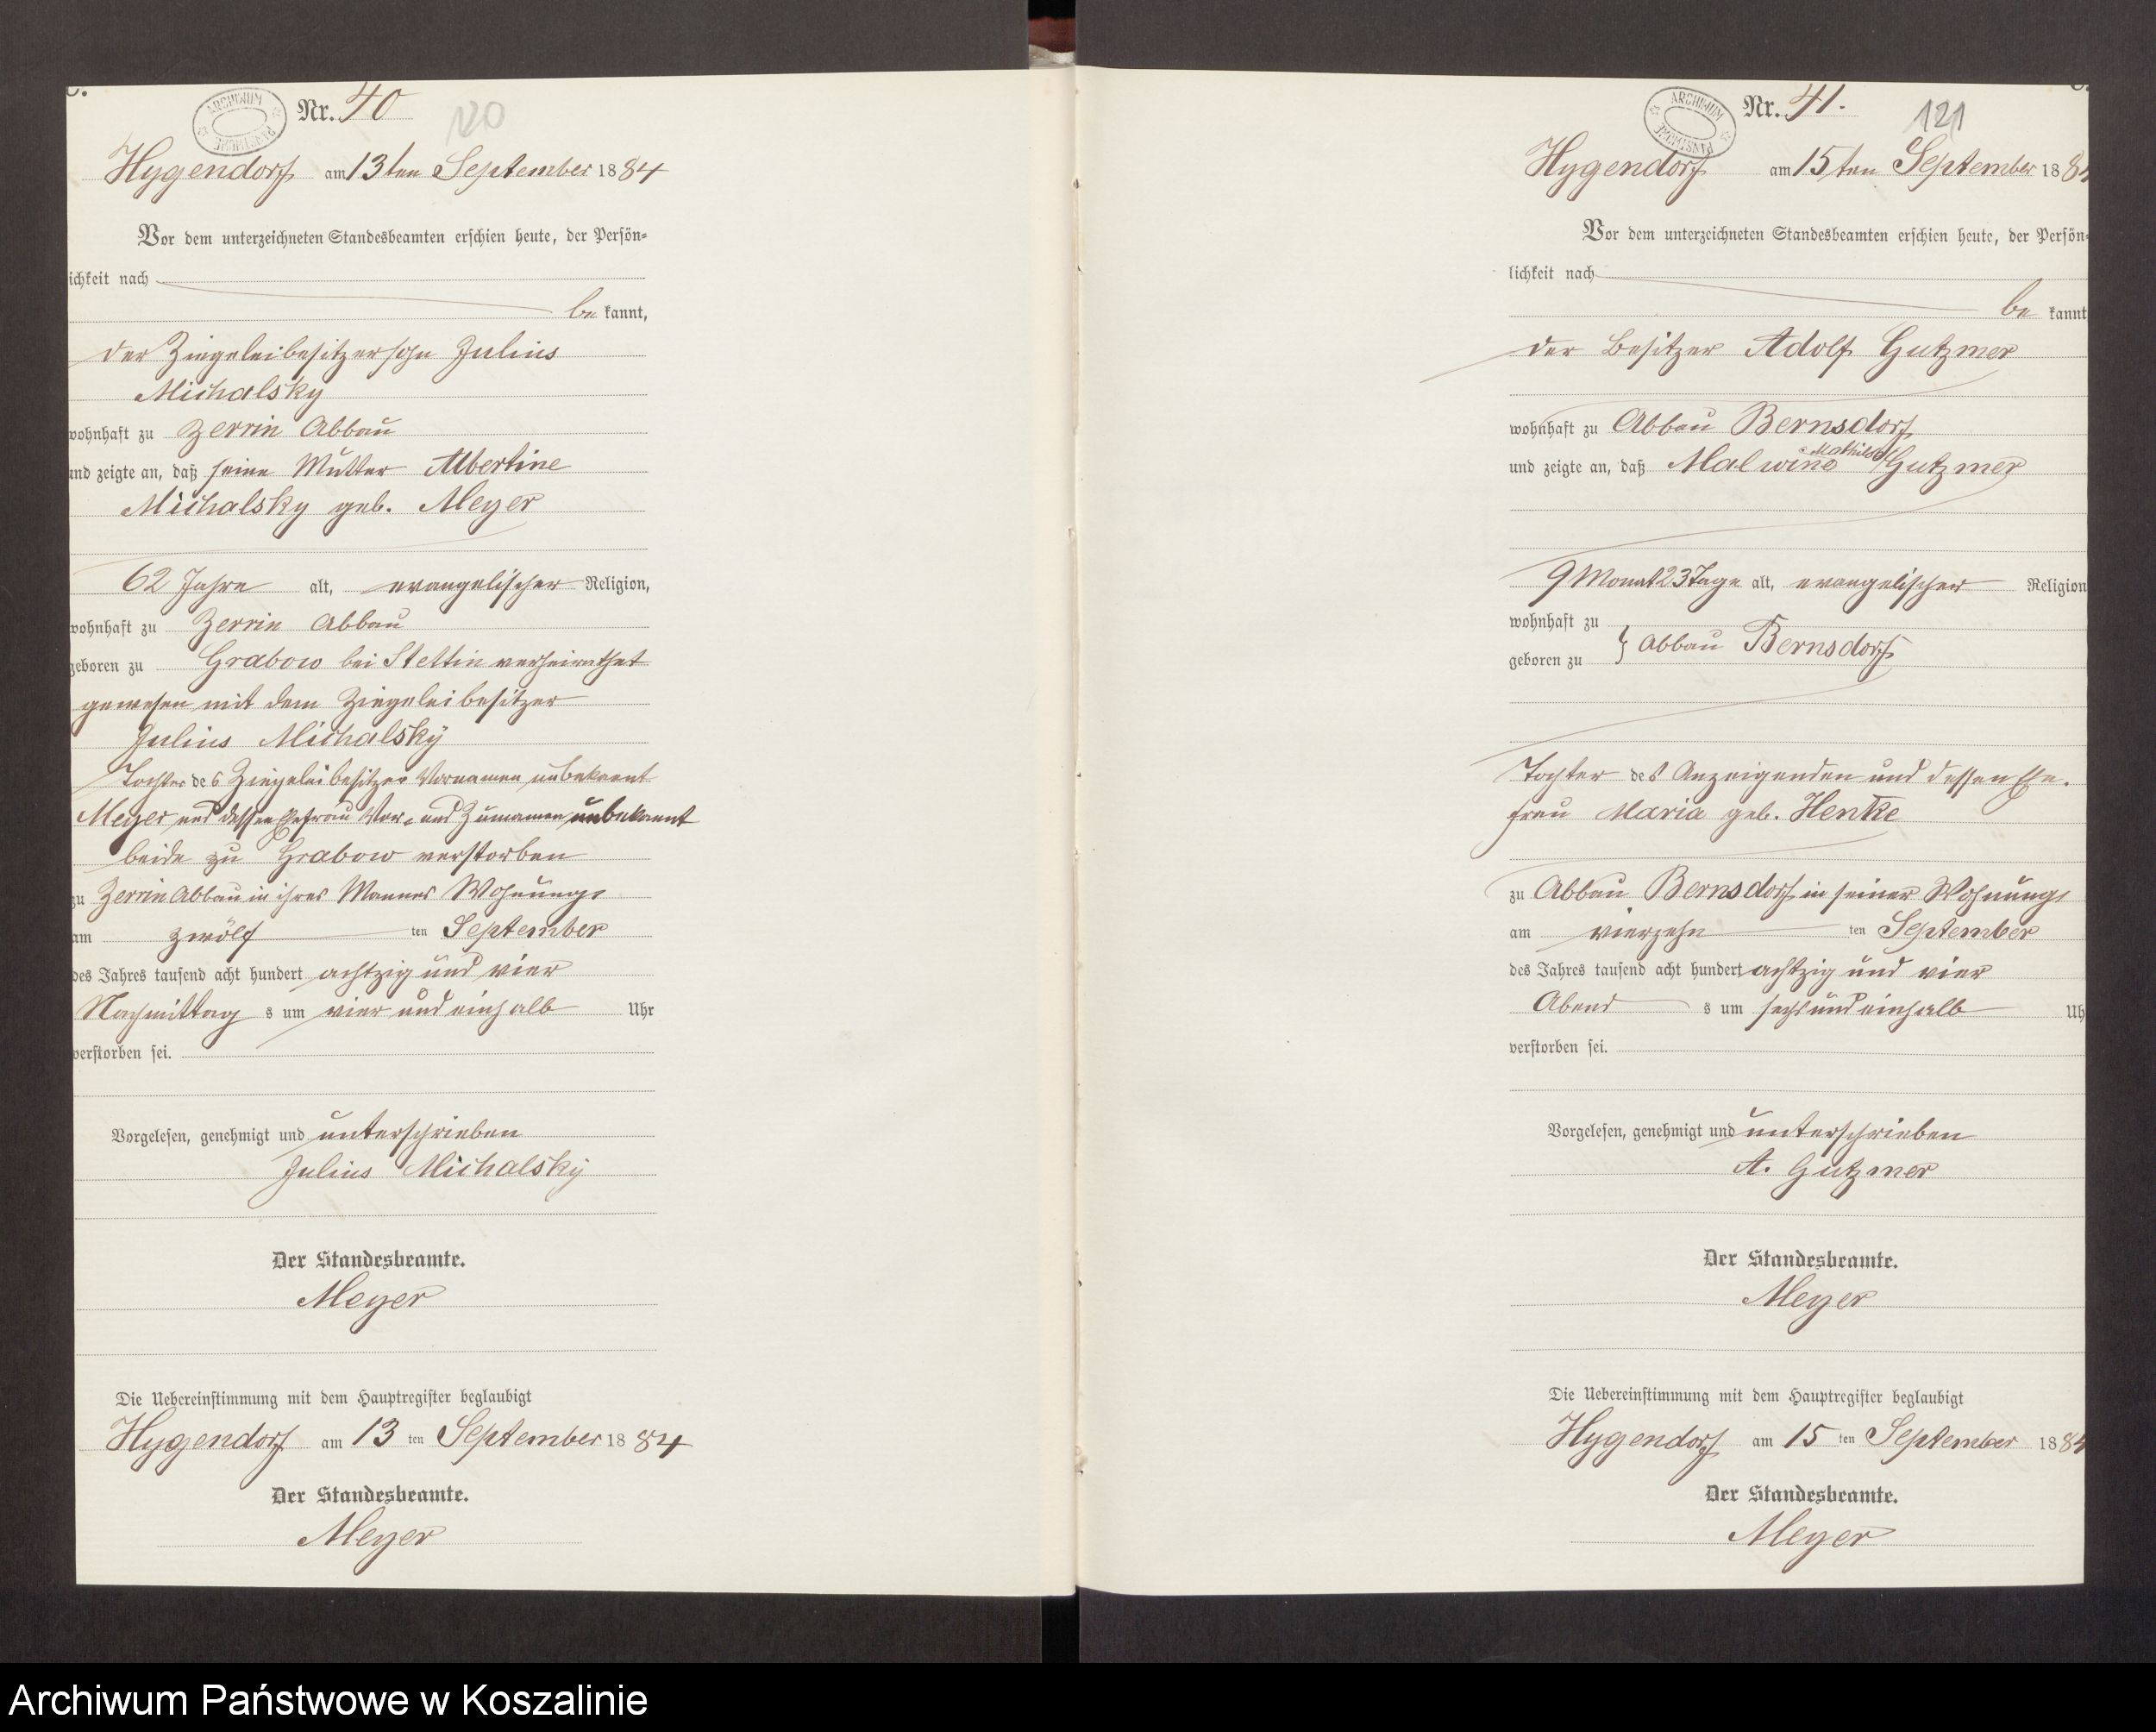 C.
ARCHIWUM PAŃSTWOWE
Nr. 40
120
Hygendorf am 13ten September 1884
Vor dem unterzeichneten Standesbeamten erschien heute, der Persön=
ichkeit nach
be kannt,
der Ziegeleibesitzersohn Julius
Michalsky
wohnhaft zu Zerrin Abbau
und zeigte an, daß seine Mutter Albertine
Michalsky geb. Meyer
62 Jahre alt, evangelischer Religion,
wohnhaft zu Zerrin Abbau
geboren zu Grabow bei Stettin verheirathet
gewesen mit dem Ziegeleibesitzer
Julius Michalsky
Tochter des Ziegeleibesitzer Vornamen unbekannt
Meyer und dessen Ehefrau Vor- und Zunamen unbekannt
beide zu Grabow verstorben
zu Zerrin Abbau in ihres Mannes Wohnung,
am zwölf ten September
des Jahres tausend acht hundert achtzig und vier
Nachmittag s um vier und einhalb Uhr
verstorben sei.
Vorgelesen, genehmigt und unterschrieben
Julius Michalsky
Der Standesbeamte.
Meyer
Die Uebereinstimmung mit dem Hauptregister beglaubigt
Hygendorf am 13 ten September 1884
Der Standesbeamte.
Meyer
ARCHIWUM PAŃSTWOWE
Nr. 41.
121
Hygendorf am 15ten September 1884
Vor dem unterzeichneten Standesbeamten erschien heute, der Persön=
lichkeit nach
be kannt
der Besitzer Adolf Gutzmer
wohnhaft zu Abbau Bernsdorf
und zeigte an, daß Malwine Mathilde Gutzmer
9 Monat 23 Tage alt, evangelischer Religion
wohnhaft zu
geboren zu } Abbau Bernsdorf
Tochter des Anzeigenden und dessen Ehe-
frau Maria geb. Henke
zu Abbau Bernsdorf in seiner Wohnung,
am vierzehn ten September
des Jahres tausend acht hundert achtzig und vier
Abend s um sechs und einhalb Uh
verstorben sei.
Vorgelesen, genehmigt und unterschrieben
A. Gutzmer
Der Standesbeamte.
Meyer
Die Uebereinstimmung mit dem Hauptregister beglaubigt
Hygendorf am 15 ten September 1884
Der Standesbeamte.
Meyer
Archiwum Państwowe w Koszalinie